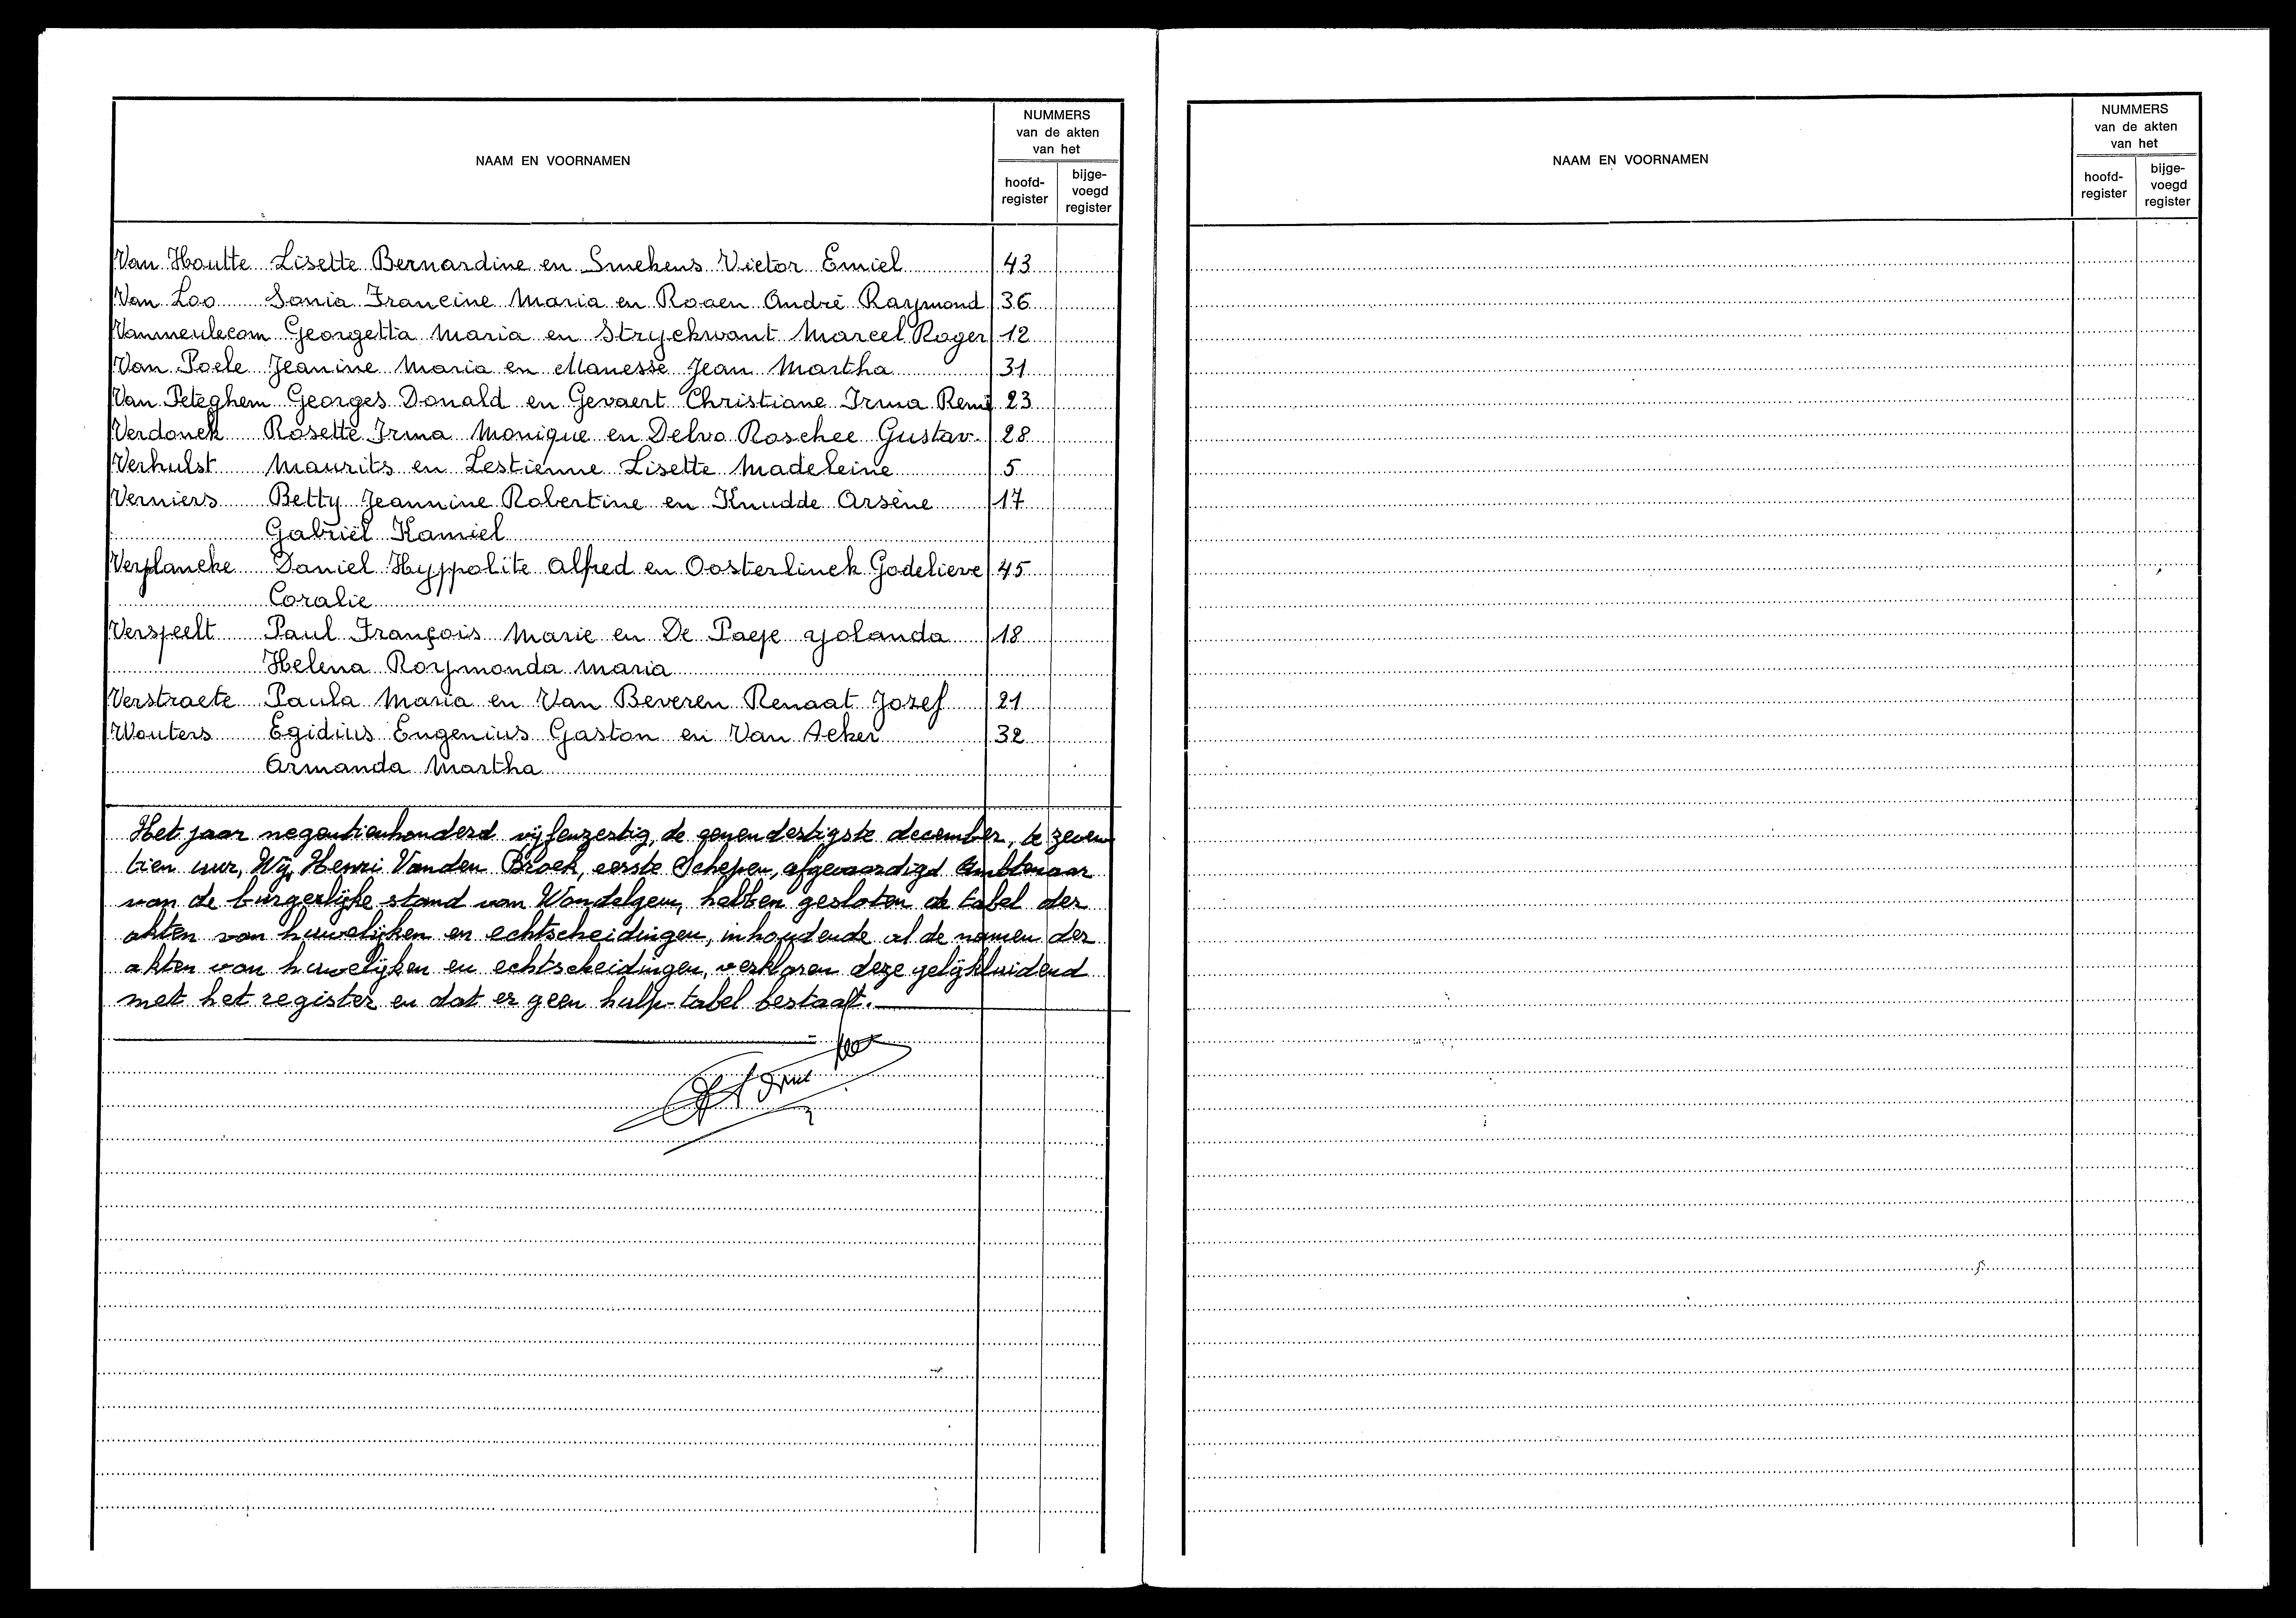 NAAM EN VOORNAMEN
NUMMERS
van de akten
van het
hoofd-
register
bijge-
voegd
register
Van Houtte Lisette Bernardine en Smekens Victor Emiel 43
Van Loo Sonia Francine Maria en Rogen André Raymond 36
Vanmeulecom Georgetta Maria en Stryckwant Marcel Roger 12
Van Poele Jeanine Maria en Manesse Jean Martha 31
Van Peteghem Georges Donald en Gevaert Christiane Irma Remi 23
Verdonck Rosette Irma Monique en Delva Roschee Gustav. 28
Verhulst Maurits en Lestienne Lisette Madeleine 5
Verniers Betty Jeannine Robertine en Knudde Arsène 17
Gabriël Kamiel
Verplancke Daniel Hyppolite Alfred en Oosterlinck Godelieve 45
Coralie
Verspeelt Paul François Marie en De Paepe Yolanda 18
Helena Raymonda Maria
Verstraete Paula Maria en Van Beveren Renaat Jozef 21
Wouters Egidius Eugenius Gaston en Van Acker 32
Armanda Martha
Het jaar negentienhonderd vijfenzestig, de eenendertigste december, te zeven
tien uur, Wij, Henri Vanden Broek, eerste Schepen, afgevaardigd Ambtenaar
van de burgerlijke stand van Wondelgem, hebben gesloten de tabel der
akten van huwelijken en echtscheidingen, inhoudende al de namen der
akten van huwelijken en echtscheidingen, verklaren deze gelijkluidend
met het register en dat er geen hulp-tabel bestaat.
NAAM EN VOORNAMEN
NUMMERS
van de akten
van het
hoofd-
register
bijge-
voegd
register